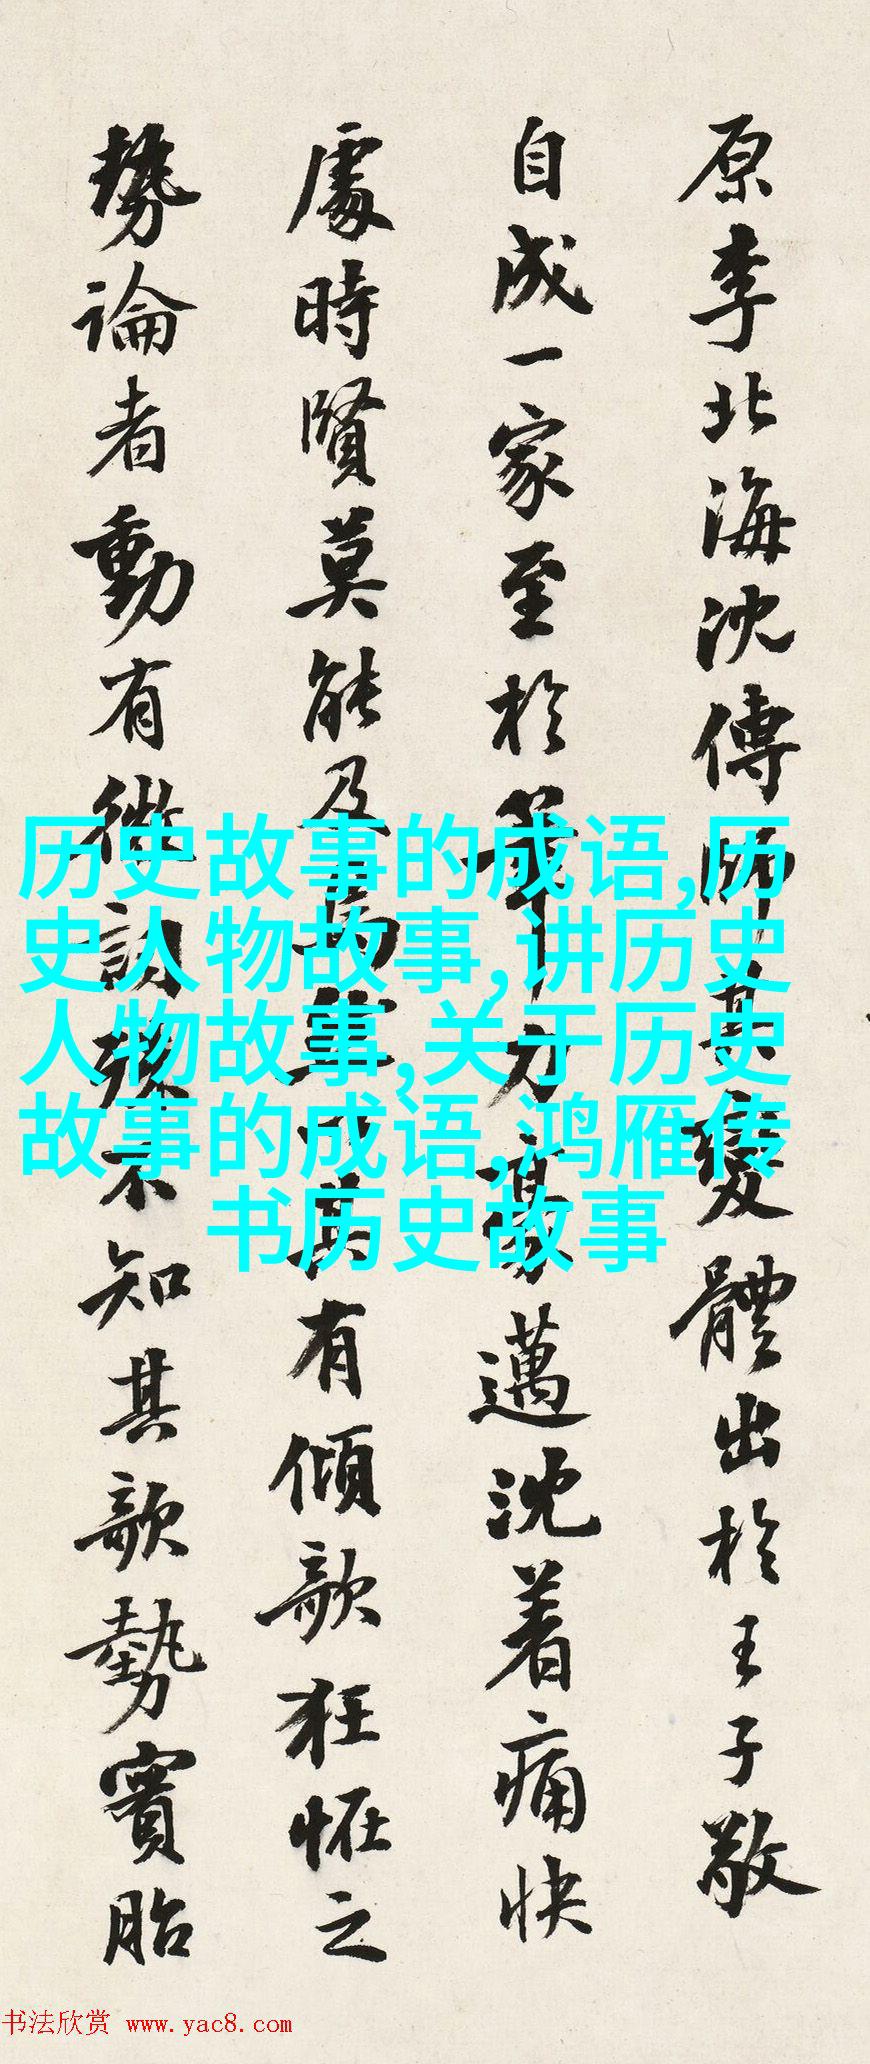 原李北海沈傳師其變體出於王子敬
自成一家至於筆力豪邁沈着痛快
處時賢莫能及焉以其有傾欹狂怪之
勢論者動有微詞殊不知其欹勢實胎
历史故事的成语,历
史人物故事,讲历史
人物故事,关于历史
故事的成语,鸿雁传
书历史故事
书法欣赏 www.yac8.com